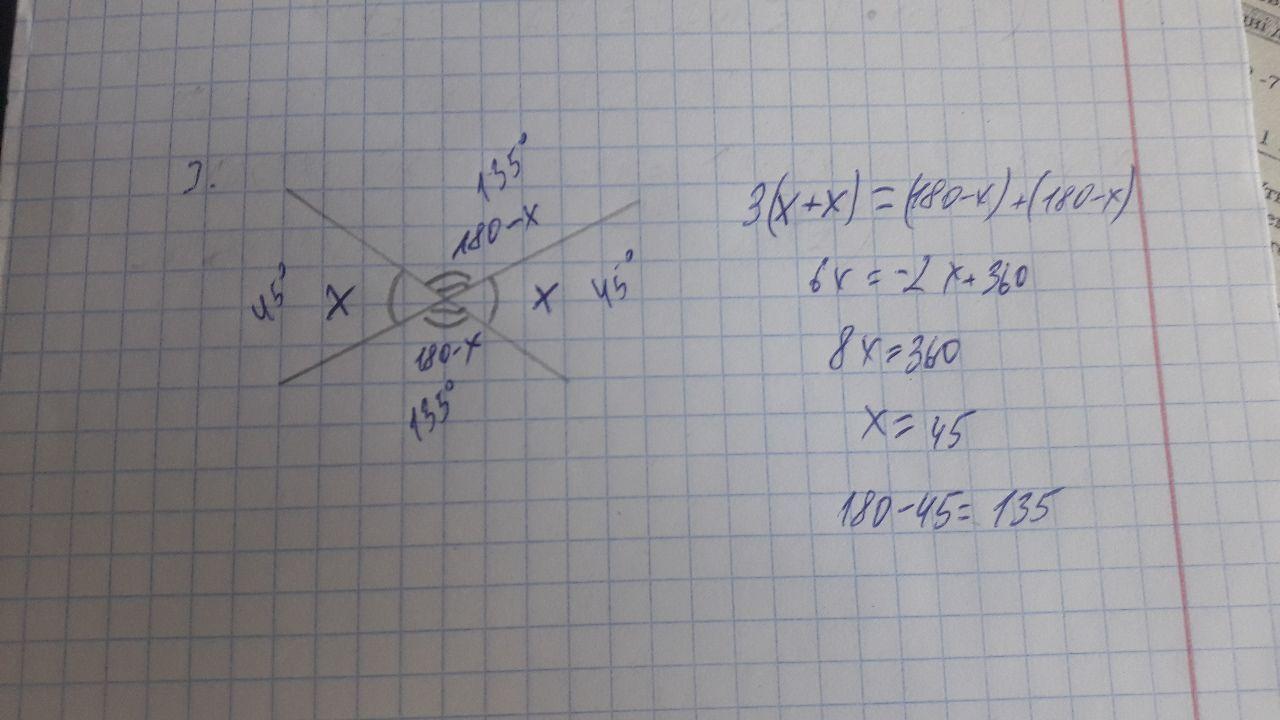 3.
135°
180-x
45° x
x 45°
180-x
135°
3(x+x)=(180-x)+(180-x)
6x=-2x+360
8x=360
x=45
180-45=135